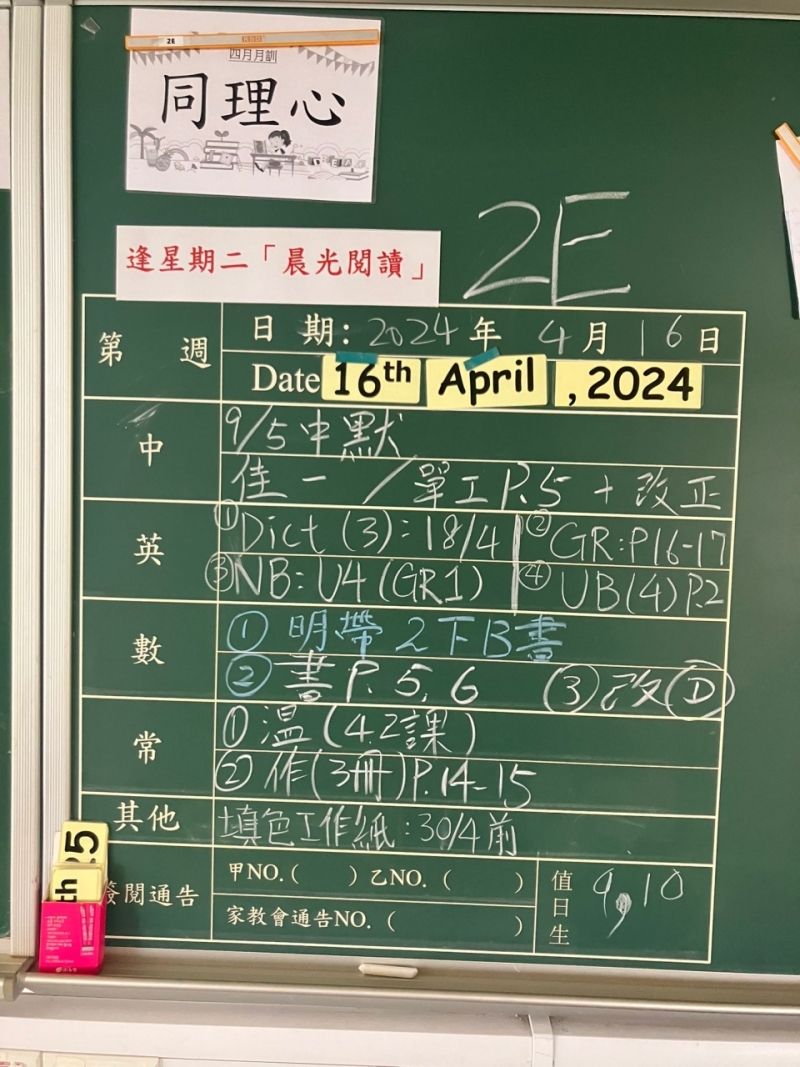 2E
四月月訓
同理心
2E
逢星期二「晨光閱讀」
第 週
日 期: 2024 年 4 月 16 日
Date 16th April , 2024
中
9/5 中默
佳一 / 單工 P.5 + 改正
英
① Dict (3): 18/4 ② GR: P16-17
③ NB: U4 (GR1) ④ UB(4) P.2
數
① 明帶2下B書
② 書 P. 5, 6 ③ 改 D
常
① 温 (4.2課)
② 作(3冊) P.14-15
其他
填色工作紙: 30/4 前
簽閱通告
甲NO. ( ) 乙NO. ( )
家教會通告NO. ( )
值日生
9, 10
25
th